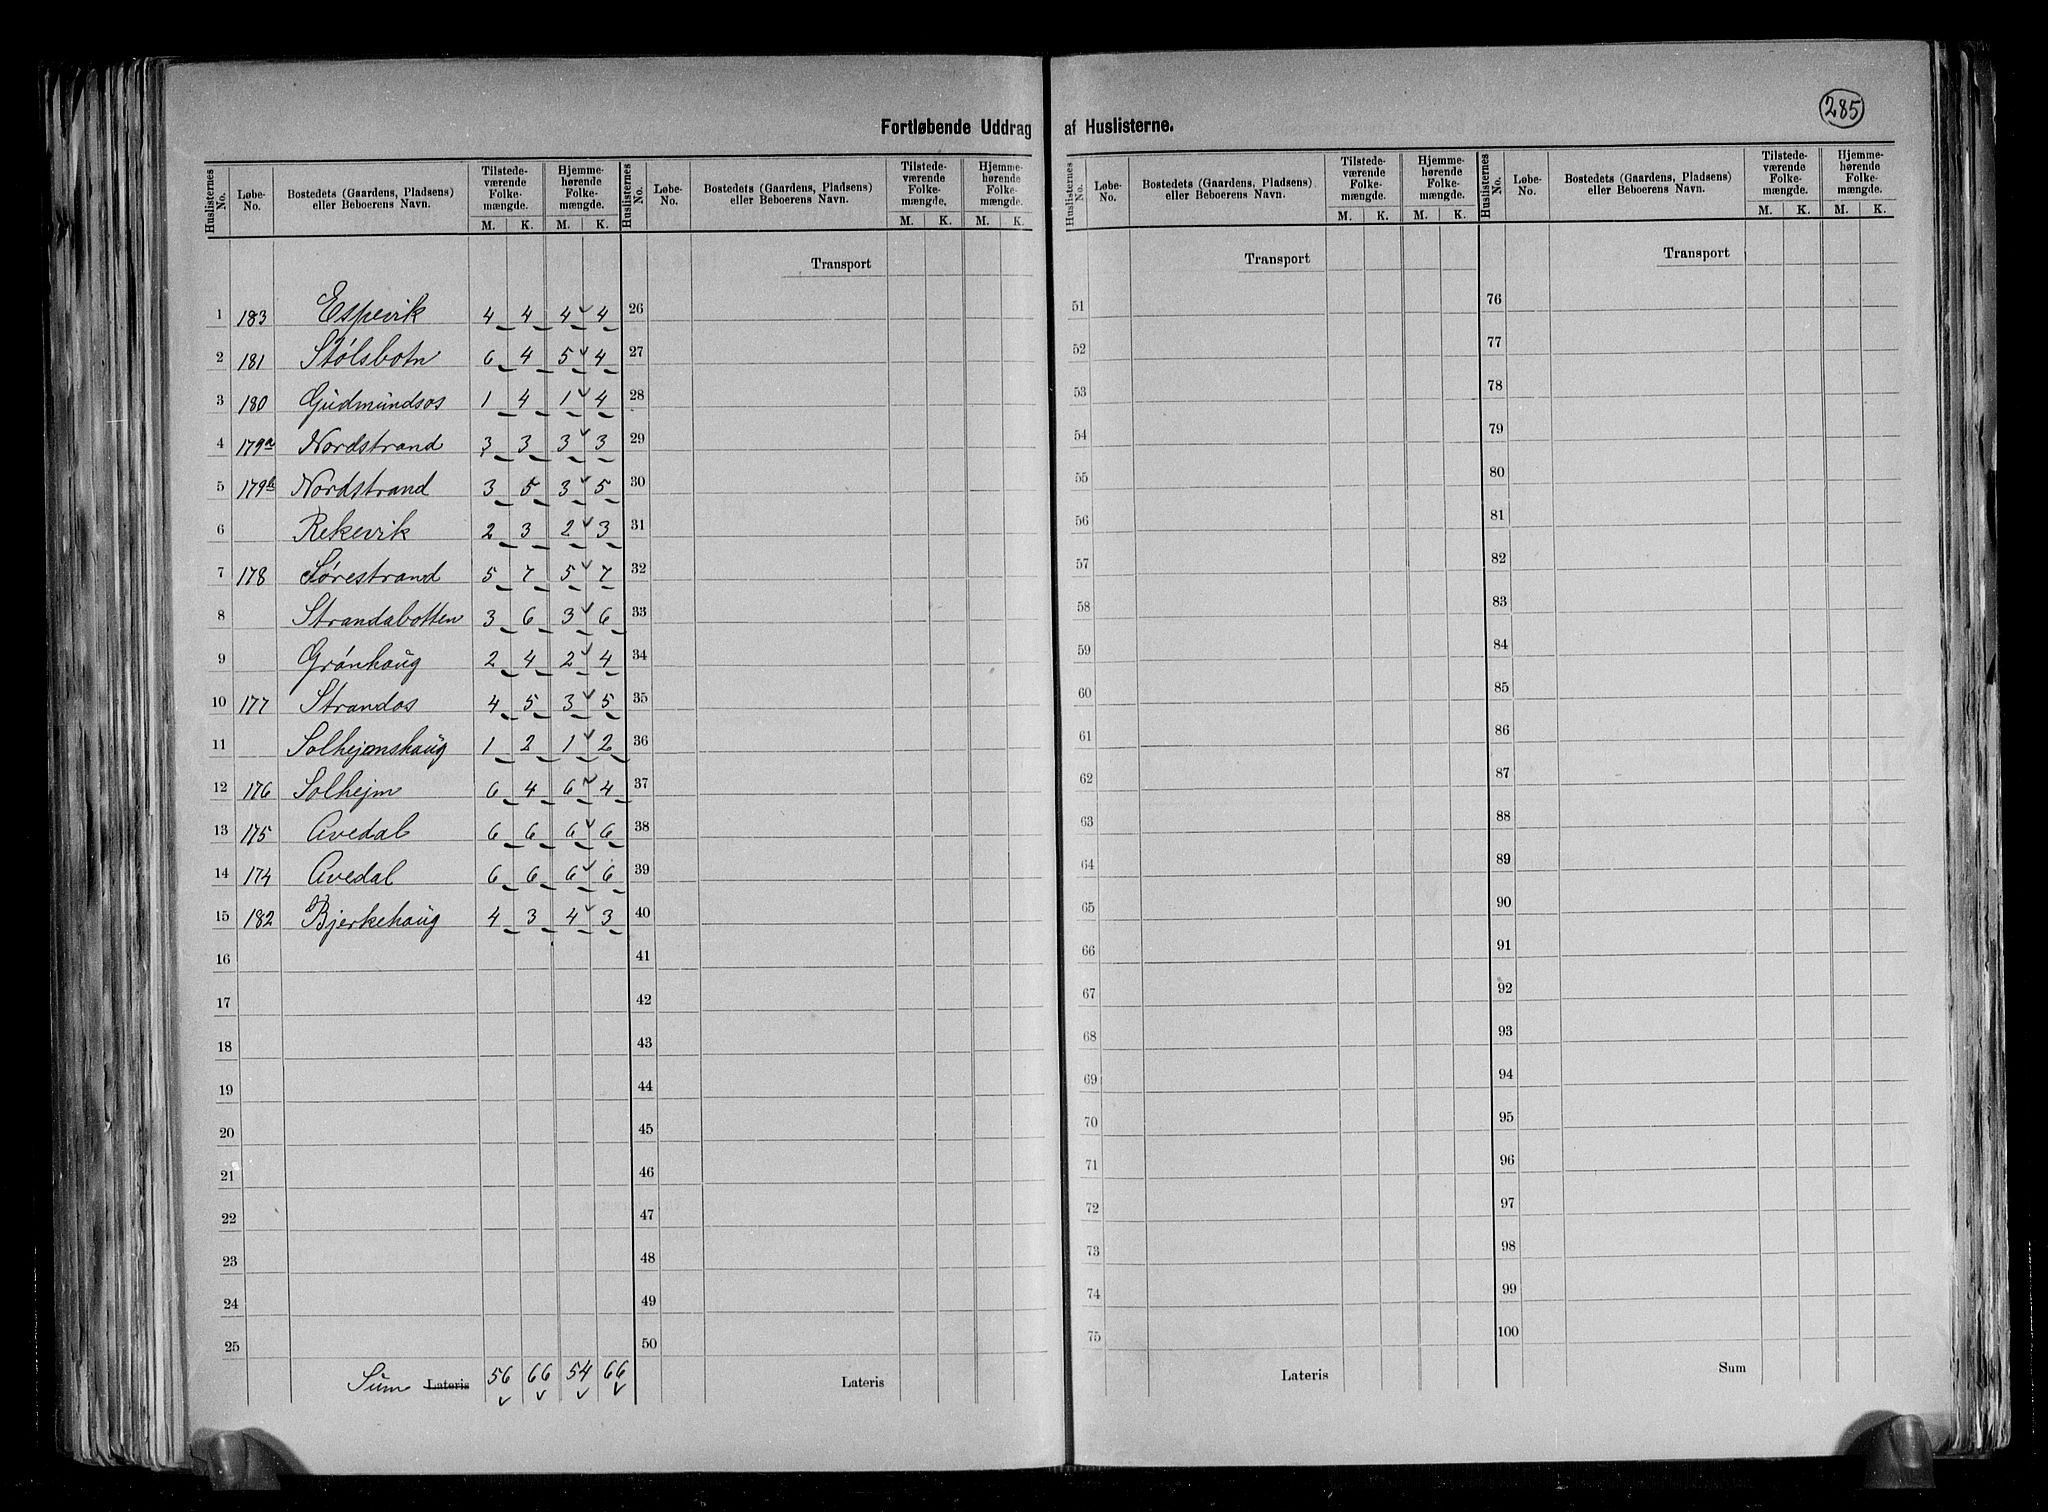 285
Fortløbende Uddrag af Huslisterne.
Huslisternes No. Løbe-No. Bostedets (Gaardens, Pladsens) eller Beboerens Navn. Tilstedeværende Folkemængde. M. K. Hjemmehørende Folkemængde. M. K.
Huslisternes No. Løbe-No. Bostedets (Gaardens, Pladsens) eller Beboerens Navn. Tilstedeværende Folkemængde. M. K. Hjemmehørende Folkemængde. M. K.
Huslisternes No. Løbe-No. Bostedets (Gaardens, Pladsens) eller Beboerens Navn. Tilstedeværende Folkemængde. M. K. Hjemmehørende Folkemængde. M. K.
Huslisternes No. Løbe-No. Bostedets (Gaardens, Pladsens) eller Beboerens Navn. Tilstedeværende Folkemængde. M. K. Hjemmehørende Folkemængde. M. K.
Transport Transport Transport
1 183 Espevik 4 4 4 4 26 51 76
2 181 Stølsbotn 6 4 5 4 27 52 77
3 180 Gudmundsos 1 4 1 4 28 53 78
4 179a Nordstrand 3 3 3 3 29 54 79
5 179b Nordstrand 3 5 3 5 30 55 80
6 Rekevik 2 3 2 3 31 56 81
7 178 Sørestrand 5 7 5 7 32 57 82
8 Strandabotten 3 6 3 6 33 58 83
9 Grønhaug 2 4 2 4 34 59 84
10 177 Strandos 4 5 3 5 35 60 85
11 Solhejmshaug 1 2 1 2 36 61 86
12 176 Solhejm 6 4 6 4 37 62 87
13 175 Avedal 6 6 6 6 38 63 88
14 174 Avedal 6 6 6 6 39 64 89
15 182 Bjerkehaug 4 3 4 3 40 65 90
16 41 66 91
17 42 67 92
18 43 68 93
19 44 69 94
20 45 70 95
21 46 71 96
22 47 72 97
23 48 73 98
24 49 74 99
25 50 75 100
Sum Lateris 56 66 54 66 Lateris Lateris Sum